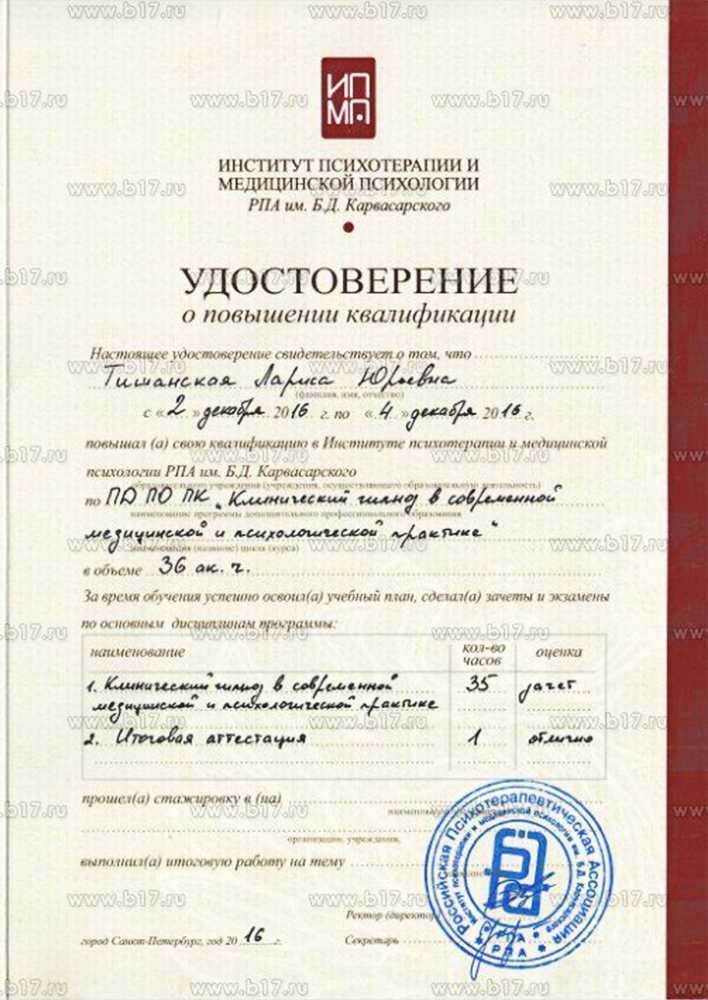 ИП
МП
ИНСТИТУТ ПСИХОТЕРАПИИ И
МЕДИЦИНСКОЙ ПСИХОЛОГИИ
РПА им. Б.Д. Карвасарского
УДОСТОВЕРЕНИЕ
о повышении квалификации
Настоящее удостоверение свидетельствует о том, что
Тиманская Лариса Юрьевна
(фамилия, имя, отчество)
с «2» декабря 2016 г. по «4» декабря 2016 г.
повышал (а) свою квалификацию в Институте психотерапии и медицинской
психологии РПА им. Б.Д. Карвасарского
образовательного учреждения (учреждения, осуществляющего образовательную деятельность)
по ПА ПО ПК „Клинический гипноз в современной
наименование программы дополнительного профессионального образования
медицинской и психологической практике“
наименования (название) цикла (курса)
в объеме 36 ак. ч.
За время обучения успешно освоил(а) учебный план, сделал(а) зачеты и экзамены
по основным дисциплинам программы:
наименование кол-во часов оценка
1. Клинический гипноз в современной 35 зачет
медицинской и психологической практике
2. Итоговая аттестация 1 отлично
прошел(а) стажировку в (на)
организации, учреждения,
выполнил(а) итоговую работу на тему
Ректор (директор)
город Санкт-Петербург, год 2016 г. Секретарь
Российская Психотерапевтическая Ассоциация
Институт психотерапии и медицинской психологии им. Б.Д. Карвасарского
РПА
РПА
www.b17.ru